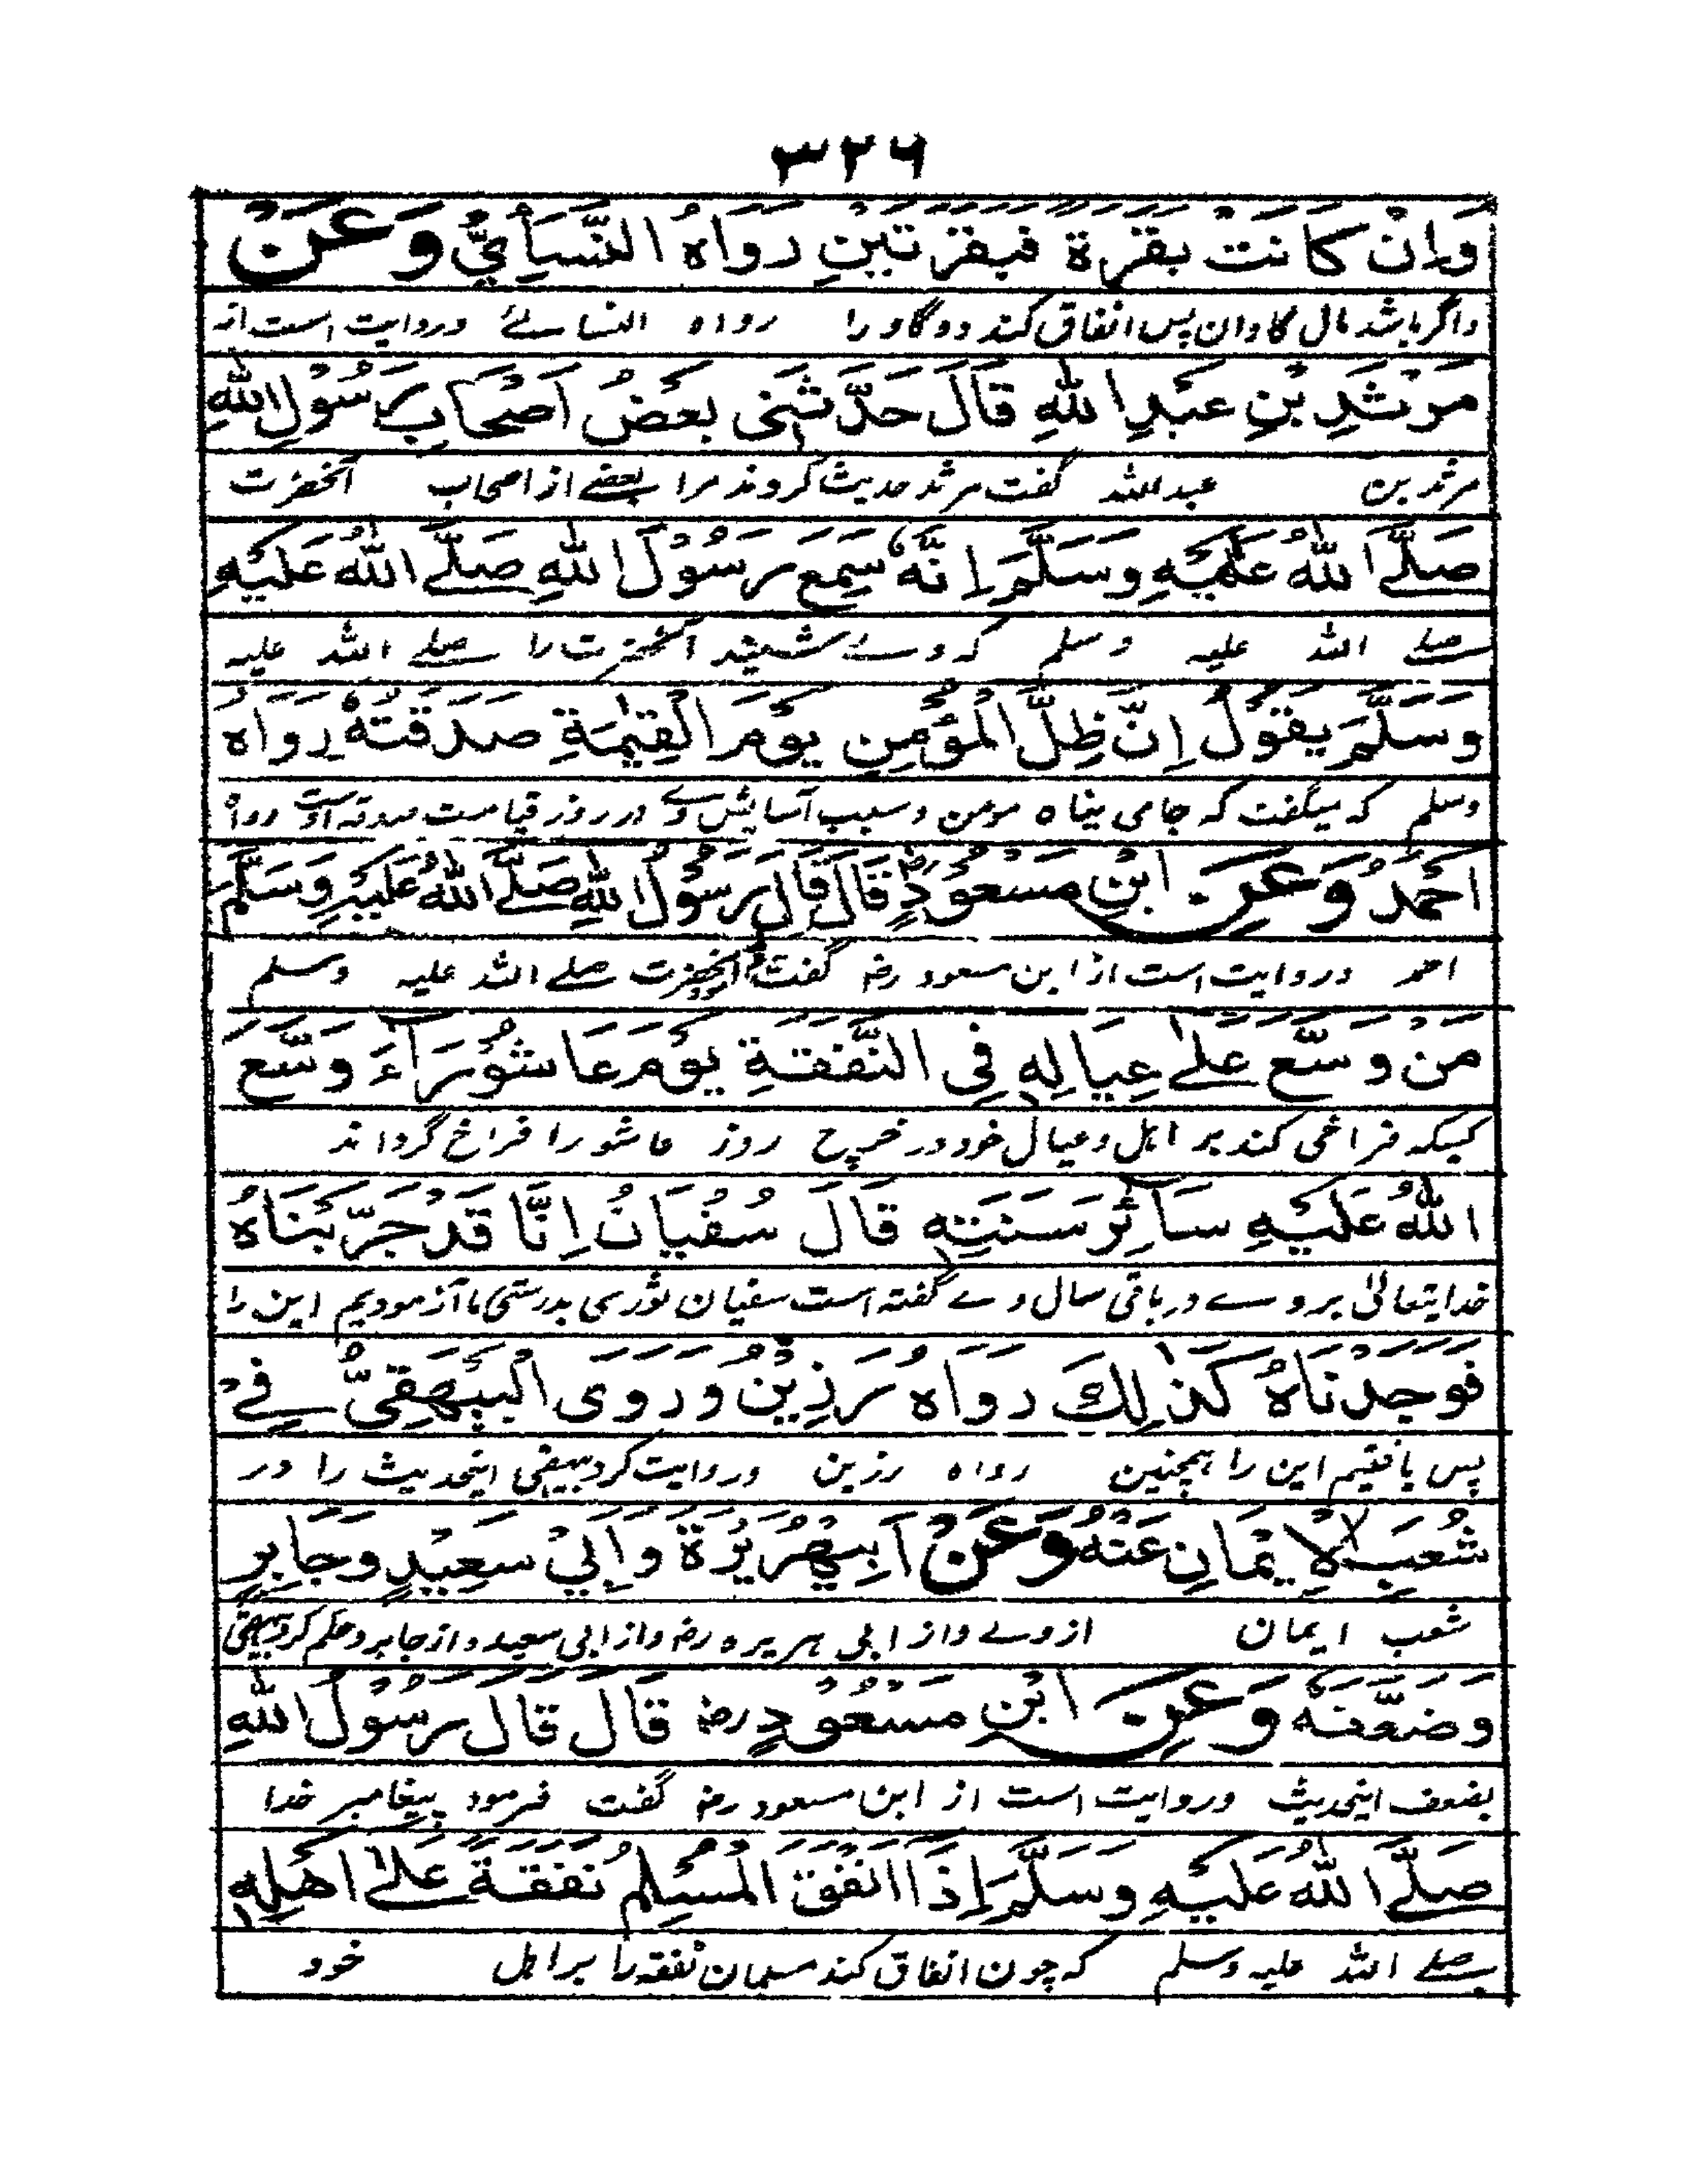 ۳۲۶
وَاِنْ كَانَتْ بَقَرَةً فَبَقَرَتَيْنِ رَوَاهُ النَّسَأِيُّ وَعَنْ
واگر باشد مال گاوان پس انفاق کند دو گاو را رواه النسائے وروایت است از
مَرْثَدِ بْنِ عَبْدِ اللّٰهِ قَالَ حَدَّثَنِی بَعْضُ اَصْحَابِ رَسُوْلِ اللّٰهِ
مرثد بن عبدالله گفت مرثد حدیث کردند مرا بعضے از اصحاب آنحضرت
صَلَّے اللّٰهُ عَلَيْهِ وَسَلَّمَ اِنَّهٗ سَمِعَ رَسُوْلَ اللّٰهِ صَلَّے اللّٰهُ عَلَيْهِ
صلے الله علیه وسلم که وے شنید آنحضرت را صلے الله علیه
وَسَلَّمَ يَقُوْلُ اِنَّ ظِلَّ الْمُؤْمِنِ يَوْمَ الْقِيٰمَةِ صَدَقَتُهٗ رَوَاهُ
وسلم که میگفت که جامی پناه مومن وسبب آسایش وے در روز قیامت صدقه اوست رواه
اَحْمَدُ وَعَنِ ابْنِ مَسْعُوْدٍ رض قَالَ قَالَ رَسُوْلُ اللّٰهِ صَلَّے اللّٰهُ عَلَيْهِ وَسَلَّمَ
احمد وروایت است از ابن مسعود رض گفت آنحضرت صلے الله علیه وسلم
مَنْ وَسَّعَ عَلٰے عِيَالِهٖ فِی النَّفَقَةِ يَوْمَ عَاشُوْرَآءَ وَسَّعَ
کسیکه فراخی کند بر اہل وعیال خود در خرچ روز عاشورا فراخ گرداند
اللّٰهُ عَلَيْهِ سَآئِرَ سَنَتِهٖ قَالَ سُفْيَانُ اِنَّا قَدْ جَرَّبْنَاهُ
خدایتعالیٰ بروے در باقی سال وے گفته است سفیان ثوری بدرستی ما آزمودیم این را
فَوَجَدْنَاهُ كَذٰلِكَ رَوَاهُ رَزِيْنٌ وَرَوَى الْبَيْهَقِیُّ فِے
پس یافتیم این را ہمچنین رواه رزین وروایت کرد بیہقی اینحدیث را در
شُعَبِ الْاِيْمَانِ عَنْهُ وَعَنْ اَبِیْ هُرَيْرَةَ وَاَبِیْ سَعِيْدٍ وَجَابِرٍ
شعب ایمان ازوے واز ابی ہریره رض واز ابی سعید واز جابر وحکم کرد بیہقی
وَضَعَّفَهٗ وَعَنِ ابْنِ مَسْعُوْدٍ رض قَالَ قَالَ رَسُوْلُ اللّٰهِ
بضعف اینحدیث وروایت است از ابن مسعود رض گفت فرمود پیغامبر خدا
صَلَّے اللّٰهُ عَلَيْهِ وَسَلَّمَ اِذَا اَنْفَقَ الْمُسْلِمُ نَفَقَةً عَلٰے اَهْلِهٖ
صلے الله علیه وسلم که چون انفاق کند مسلمان نفقه را بر اہل خود